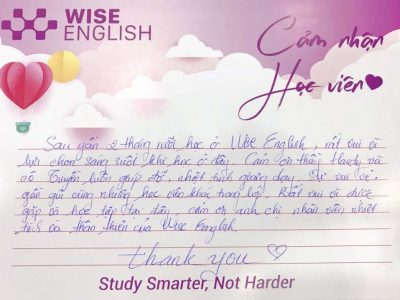 WISE
ENGLISH
Cảm nhận
Học viên
Sau gần 2 tháng rưỡi học ở Wise English, rất vui vì
lựa chọn sáng suốt khi học ở đây. Cảm ơn thầy Hardy và
cô Truyền luôn giúp đỡ, nhiệt tình giảng dạy, sự vui vẻ,
gần gũi cùng những học viên khác trong lớp. Rất vui vì được
gặp và học tập tại đây, cảm ơn anh chị nhân viên nhiệt
tình và thân thiện của Wise English.
thank you
Study Smarter, Not Harder